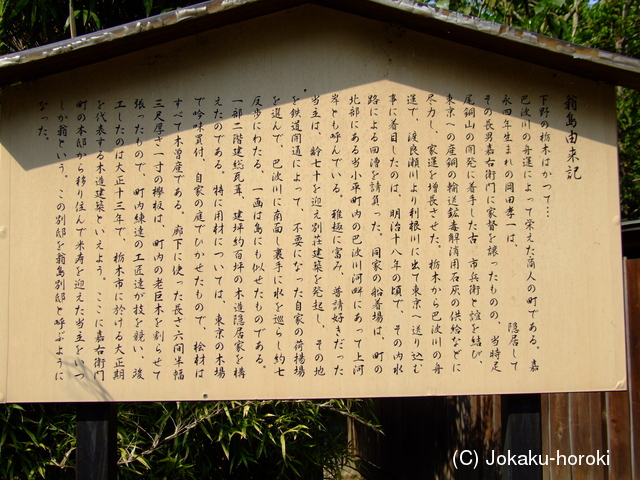 翁島由来記
下野の栃木はかつて…
巴波川の舟運によって栄えた商人の町である。　嘉
永四年生まれの岡田孝一は、　　　　　　隠居して
その長男嘉右衛門に家督を譲ったものの、当時足
尾銅山の開発に着手した古　市兵衛と誼を結び、
東京への産銅の輸送鉱毒解消用石灰の供給などに
尽力し、家運を増長させた。栃木から巴波川の舟
運で、渡良瀬川より利根川に出て東京へ送り込む
事に着目したのは、明治十八年の頃で、その内水
路による回漕を請負った。同家の船着場は、町の
北部にある当小平町内の巴波川河畔にあって上河
岸と呼んでいる。雅趣に富み、普請好きだった
当主は、齢七十を迎え別荘建築を発起し、その地
を鉄道開通によって、不要になった自家の荷揚場
を選んで、巴波川に南面し裏手に水を巡らし約七
反歩にわたる、一画は島にも似せたものである。
一部二階建総瓦葺、建坪約百坪の木造隠居家を構
えたのである。特に用材については、東京の木場
で吟味買付、自家の庭でひかせたもので、桧材は
すべて木曽産である。廊下に使った長さ六間半幅
三尺厚さ一寸の欅板は、町内の老巨木を割らせて
張ったもので、町内練達の工匠達が技を競い、竣
工したのは大正十三年で、栃木市に於ける大正期
を代表する木造建築といえよう。ここに嘉右衛門
町の本邸から移り住んで米寿を迎えた当主をいつ
しか翁という。この別邸を翁島別邸と呼ぶように
なった。
(C) Jokaku-horoki